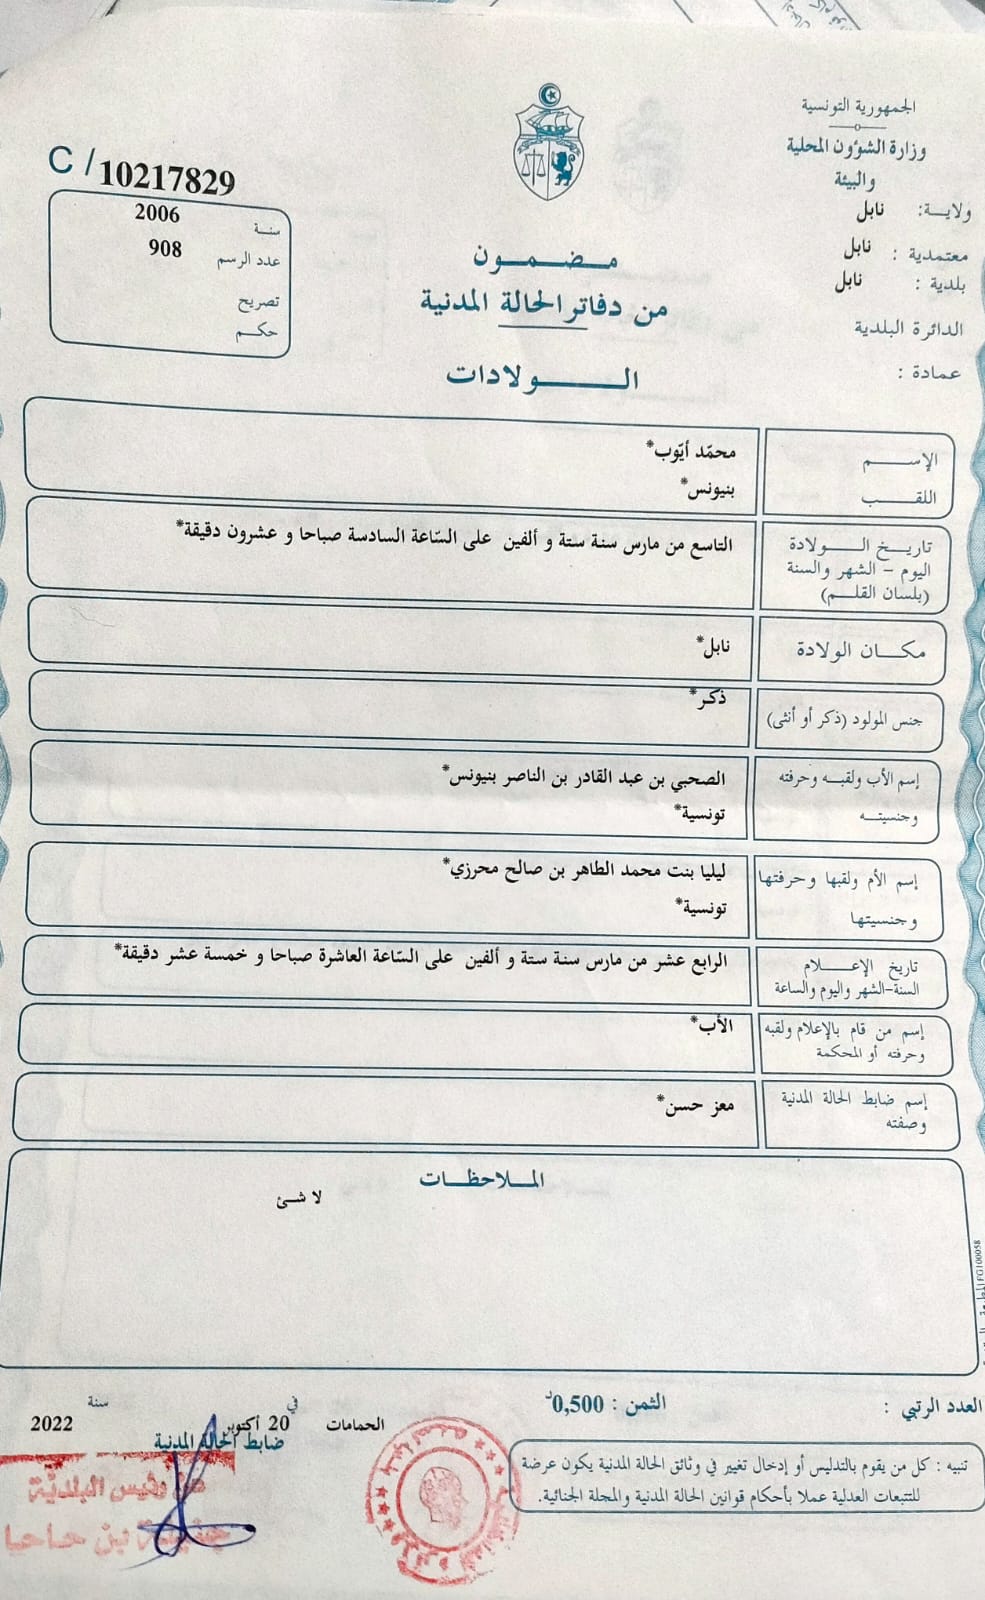 الجمهورية التونسية
وزارة الشؤون المحلية
والبيئة
ولاية: نابل
معتمدية : نابل
بلدية : نابل
الدائرة البلدية
عمادة :
C / 10217829
سنة 2006
عدد الرسم 908
تصريح
حكم
مضمون
من دفاتر الحالة المدنية
الولادات
الإسم محمّد أيّوب*
اللقب بنيونس*
تاريخ الولادة
اليوم - الشهر والسنة
(بلسان القلم)
التاسع من مارس سنة ستة و ألفين على السّاعة السادسة صباحا و عشرون دقيقة*
مكان الولادة نابل*
جنس المولود (ذكر أو أنثى) ذكر*
إسم الأب ولقبه وحرفته
وجنسيته
الصحبي بن عبد القادر بن الناصر بنيونس*
تونسية*
إسم الأم ولقبها وحرفتها
وجنسيتها
ليليا بنت محمد الطاهر بن صالح محرزي*
تونسية*
تاريخ الإعلام
السنة-الشهر واليوم والساعة
الرابع عشر من مارس سنة ستة و ألفين على السّاعة العاشرة صباحا و خمسة عشر دقيقة*
إسم من قام بالإعلام ولقبه
وحرفته أو المحكمة
الأب*
إسم ضابط الحالة المدنية
وصفته
معز حسن*
الملاحظات
لا شئ
العدد الرتبي :
الثمن : 0,500د
الحمامات في 20 أكتوبر سنة 2022
ضابط الحالة المدنية
رئيس البلدية
تنبيه : كل من يقوم بالتدليس أو إدخال تغيير في وثائق الحالة المدنية يكون عرضة
للتتبعات العدلية عملا بأحكام قوانين الحالة المدنية والمجلة الجنائية.